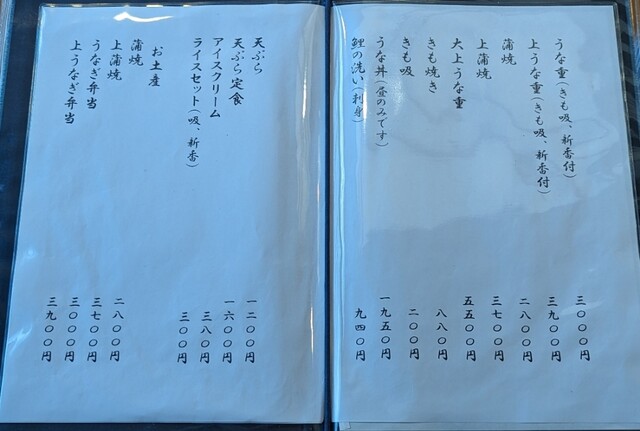 うな重(きも吸、新香付) 三〇〇〇円
上うな重(きも吸、新香付) 三九〇〇円
蒲焼 二八〇〇円
上蒲焼 三七〇〇円
大上うな重 五五〇〇円
きも焼き 八八〇円
きも吸 二〇〇円
うな丼(昼のみです) 一九五〇円
鯉の洗い(刺身) 九四〇円
天ぷら 一二〇〇円
天ぷら定食 一六〇〇円
アイスクリーム 三八〇円
ライスセット(吸、新香) 三〇〇円
お土産
蒲焼 二八〇〇円
上蒲焼 三七〇〇円
うなぎ弁当 三〇〇〇円
上うなぎ弁当 三九〇〇円